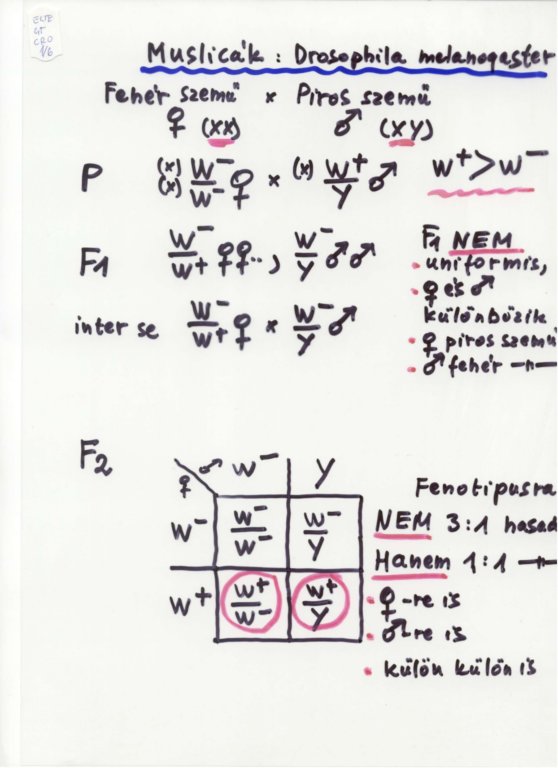 ELTE
GT
CRO
1/6
Muslicák : Drosophila melanogaster
Fehér szemű × Piros szemű
♀ (XX) ♂ (XY)
P (x) (x) w⁻/w⁻ ♀ × (x) w⁺/Y ♂ w⁺>w⁻
F1 w⁻/w⁺ ♀♀.., w⁻/Y ♂♂
F1 NEM
• uniformis,
• ♀ és ♂
különbözik
• ♀ piros szemű
• ♂ fehér —〃—
inter se w⁻/w⁺ ♀ × w⁻/Y ♂
F2
♀ ♂ w⁻ Y
w⁻ w⁻/w⁻ w⁻/Y
w⁺ w⁺/w⁻ w⁺/Y
Fenotipusra
NEM 3:1 hasad
Hanem 1:1 —〃—
• ♀-re is
• ♂-re is
• külön külön is